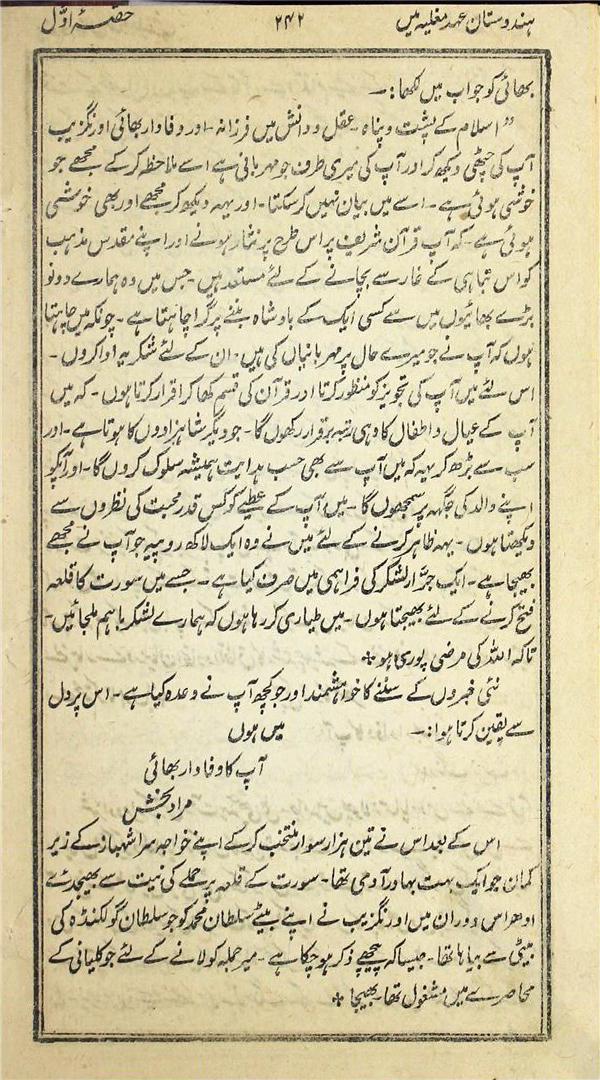 ہندوستان عہد مغلیہ میں ۲۴۲ حصۂ اوّل
بھائی کو جواب میں لکھا:۔
” اسلام کے پشت و پناہ ۔ عقل و دانش میں فرزانہ ۔ اور وفادار بھائی اورنگزیب
آپ کی چٹھی دیکھ کر اور آپ کی میری طرف جو مہربانی ہے اسے ملاحظہ کر کے مجھے جو
خوشی ہوئی ہے ۔ اسے میں بیان نہیں کر سکتا ۔ اور یہہ دیکھ کر مجھے اور بھی خوشی
ہوئی ہے ۔ کہ آپ قرآن شریف پر اس طرح پر نثار ہونے اور اپنے مقدس مذہب
کو اس تباہی کے غار سے بچانے کے لئے مستعد ہیں ۔ جس میں وہ ہمارے دونو
بڑے بھائیوں میں سے کسی ایک کے بادشاہ بننے پر گرا چاہتا ہے ۔ چونکہ میں چاہتا
ہوں کہ آپ نے جو میرے حال پر مہربانیاں کی ہیں ۔ ان کے لئے شکریہ ادا کروں ۔
اس لئے میں آپ کی تجویز کو منظور کرتا اور قرآن کی قسم کھا کر اقرار کرتا ہوں ۔ کہ میں
آپ کے عیال و اطفال کا وہی رتبہ برقرار رکھوں گا ۔ جو دیگر شاہزادوں کا ہوتا ہے ۔ اور
سب سے بڑھ کر یہہ کہ میں آپ سے بھی حسب ہدایت ہمیشہ سلوک کروں گا ۔ اور آپکو
اپنے والد کی جگہہ پر سمجھوں گا ۔ میں آپ کے عطیے کو کس قدر محبت کی نظروں سے
دیکھتا ہوں ۔ یہہ ظاہر کرنے کے لئے میں نے وہ ایک لاکھ روپیہ جو آپ نے مجھے
بھیجا ہے ۔ ایک جرّار لشکر کی فراہمی میں صرف کیا ہے ۔ جسے میں سورت کا قلعہ
فتح کرنے کے لئے بھیجتا ہوں ۔ میں طیاری کر رہا ہوں کہ ہمارے لشکر باہم ملجائیں ۔
تاکہ اللہ کی مرضی پوری ہو ٭
نئی خبروں کے سننے کا خواہشمند اور جو کچھ آپ نے وعدہ کیا ہے ۔ اس پر دل
سے یقین کرتا ہوا :۔ میں ہوں
آپ کا وفادار بھائی
مراد بخش
اس کے بعد اس نے تین ہزار سوار منتخب کر کے اپنے خواجہ سرا شہباز کے زیر
کمان جو ایک بہت بہادر آدمی تھا ۔ سورت کے قلعہ پر حملے کی نیت سے بھیجدئے
ادھر اس دوران میں اورنگزیب نے اپنے بیٹے سلطان محمد کو جو سلطان گولکنڈہ کی
بیٹی سے بیاہا تھا ۔ جیسا کہ پیچھے ذکر ہو چکا ہے ۔ میر جملہ کو لانے کے لئے جو کلیانی کے
محاصرے میں مشغول تھا ۔ بھیجا ٭